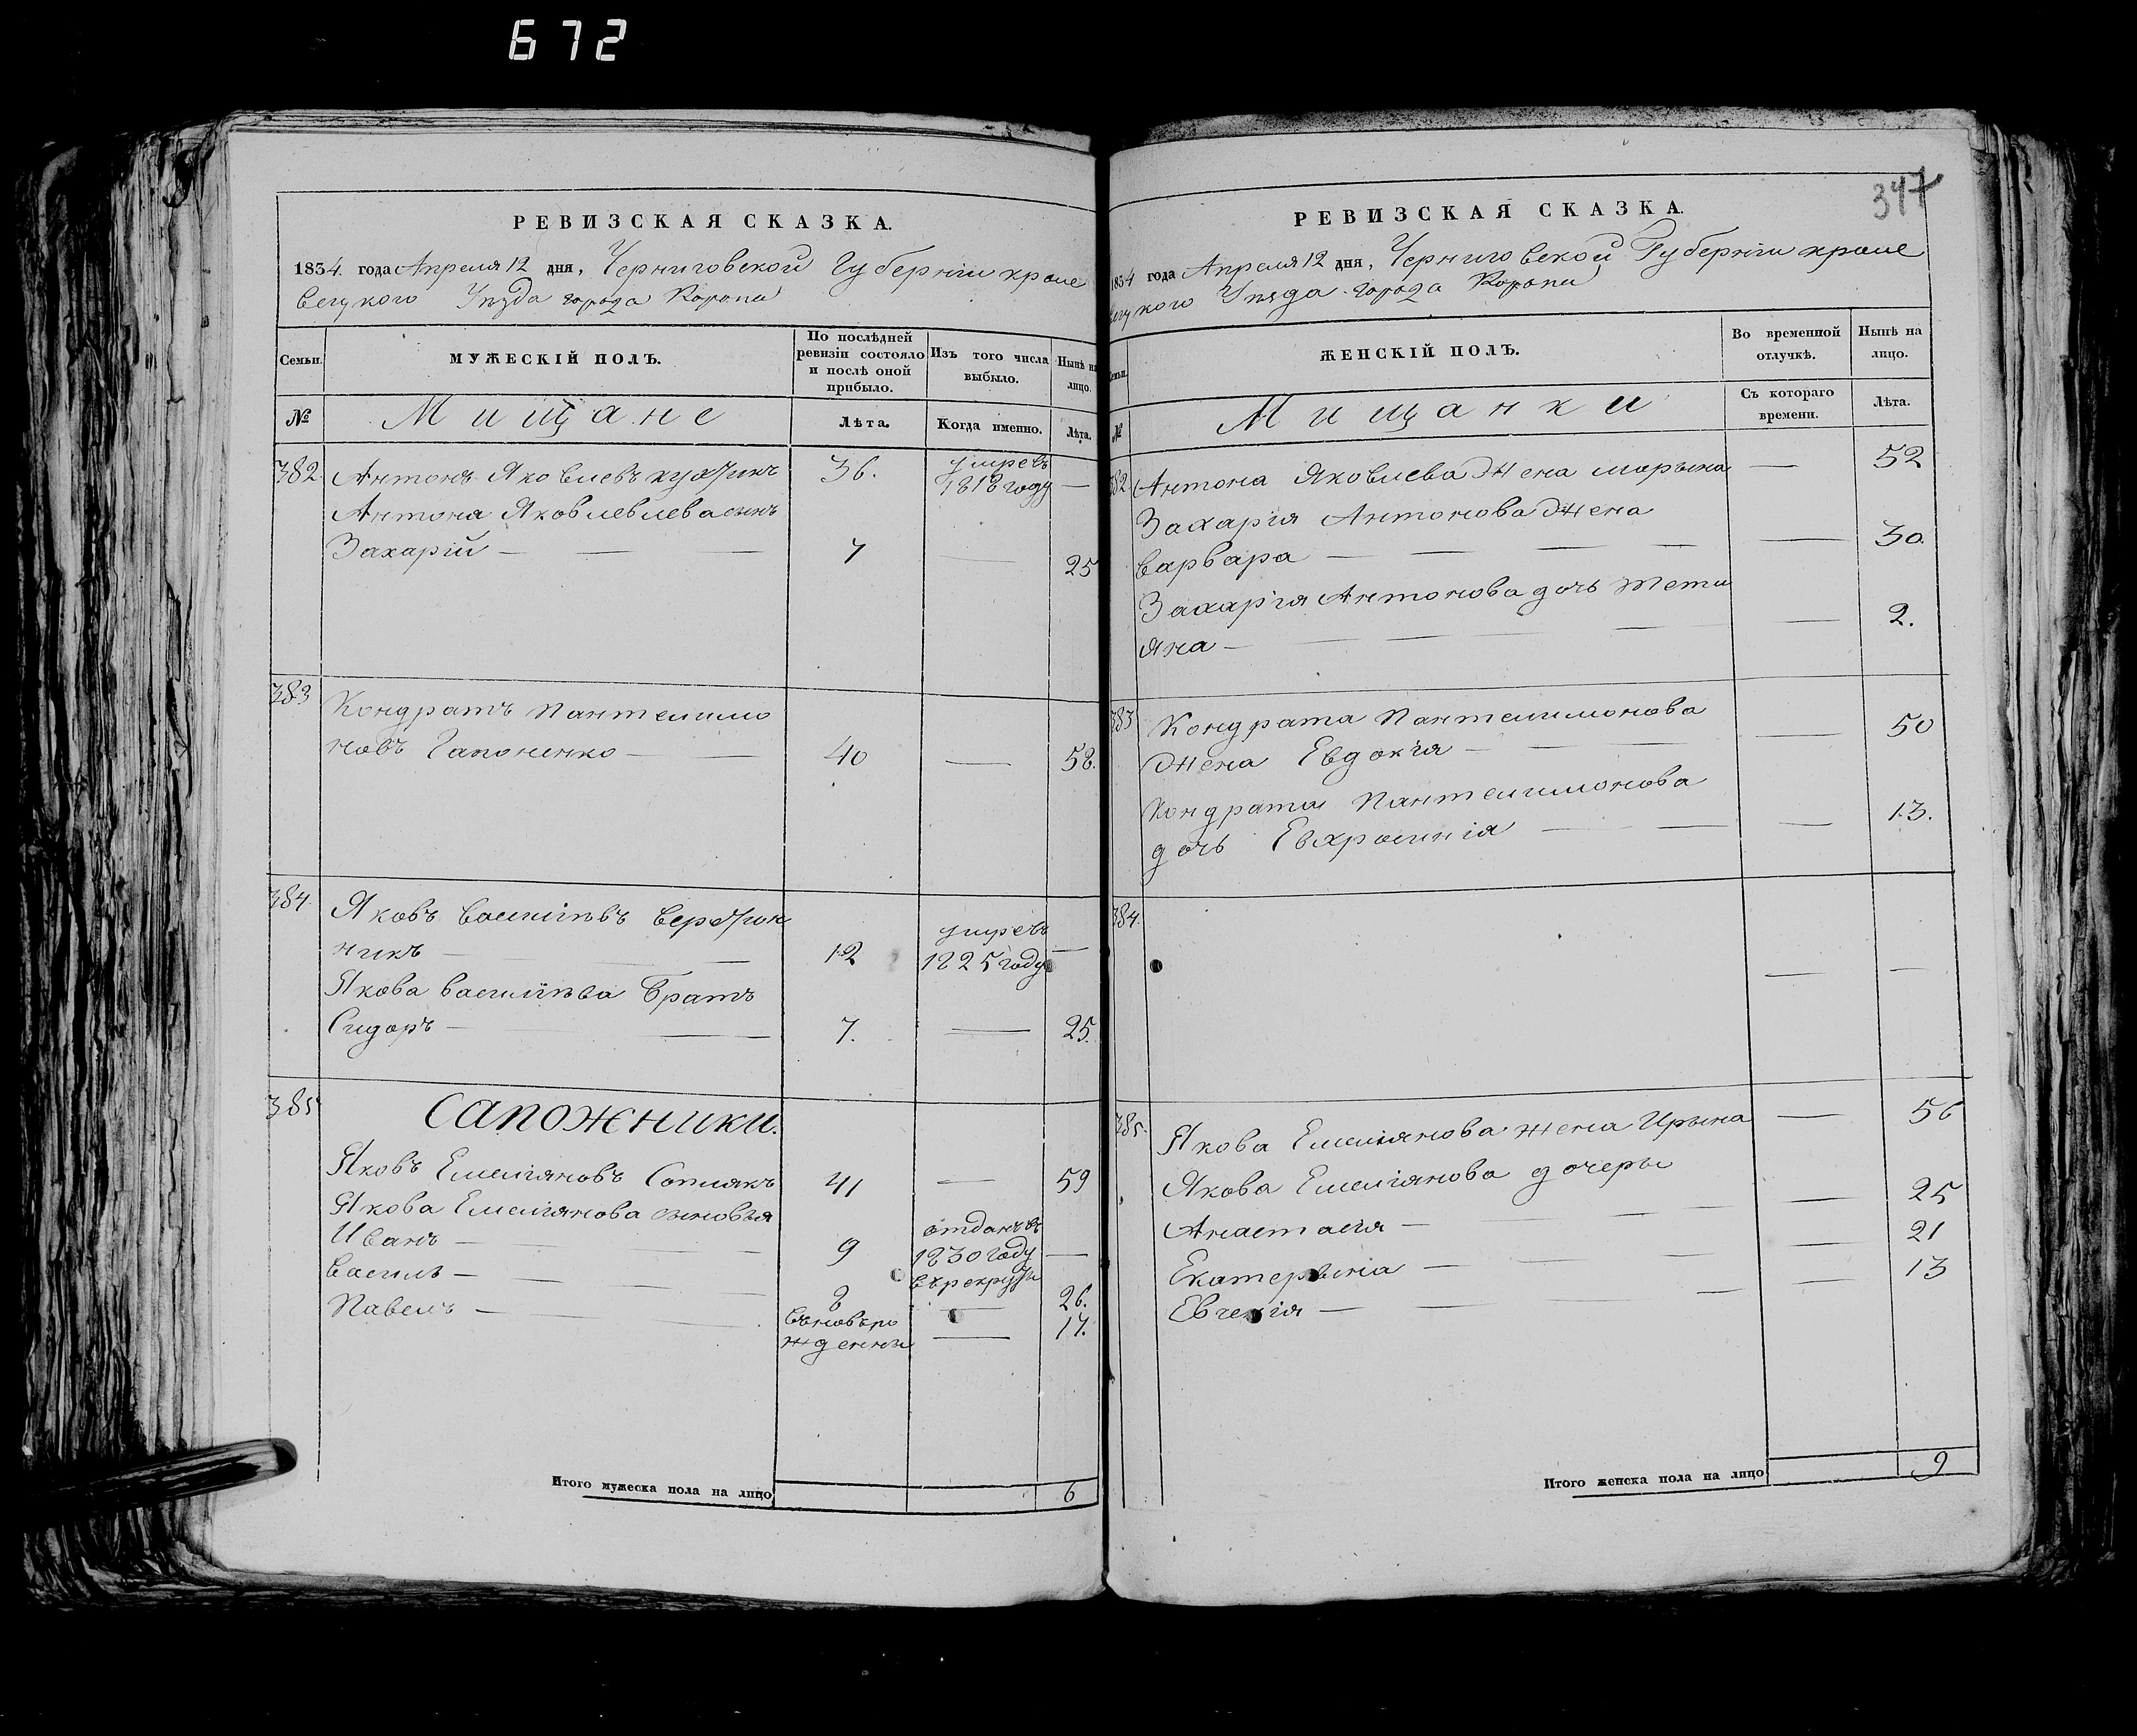 672
РЕВИЗСКАЯ СКАЗКА.
1834 года Апреля 12 дня, Черниговской Губернiи кроле
вецкого Уѣзда города Коропа
Семьи.
МУЖЕСКІЙ ПОЛЪ.
По послѣдней ревизіи состояло и послѣ оной прибыло.
Изъ того числа выбыло.
Нынѣ на лицо.
№
Мищане
Лѣта.
Когда именно.
Лѣта.
382 Антонъ Яковлевъ 36. умре въ
1818 году —
Антона Яковлевлева сынъ
Захарій — 7 — 25
383 Кондратъ Пантелимо
новъ Гапоненко — 40 — 58.
384. Яковъ Василіевъ
никъ — 12 умре въ 1825 году —
Якова Василіева Братъ
Сидоръ — 7. — 25.
385 Сапожники.
Яковъ Емеліяновъ 41 — 59
Якова Емеліянова сыновья
Иванъ — 9 отданъ въ
1830 году —
въ рекруты
Василь — 8 — 26.
Павелъ — вновъ ро
жденны — 17.
Итого мужеска пола на лицо 6
347
РЕВИЗСКАЯ СКАЗКА.
1834 года Апреля 12 дня, Черниговской Губернiи кроле
вецкого Уѣзда города Коропа
Семьи.
ЖЕНСКІЙ ПОЛЪ.
Во временной отлучкѣ.
Нынѣ на лицо.
№
Мищанки
Съ котораго времени.
Лѣта.
382 Антона Яковлева жена марына — 52
Захарія Антонова жена
варвара — — 30.
Захарія Антонова дочь Тети
яна — — 2.
383 Кондрата Пантелимонова
жена Евдокія — — 50
Кондрата Пантелимонова
дочь Евхросинія — — 13.
384. — —
385. Якова Емеліянова жена Ирына — 56
Якова Емеліянова дочеры
Анастасія — — 25
Екатерына — — 21
Евгенія — — 13
Итого женска пола на лицо 9